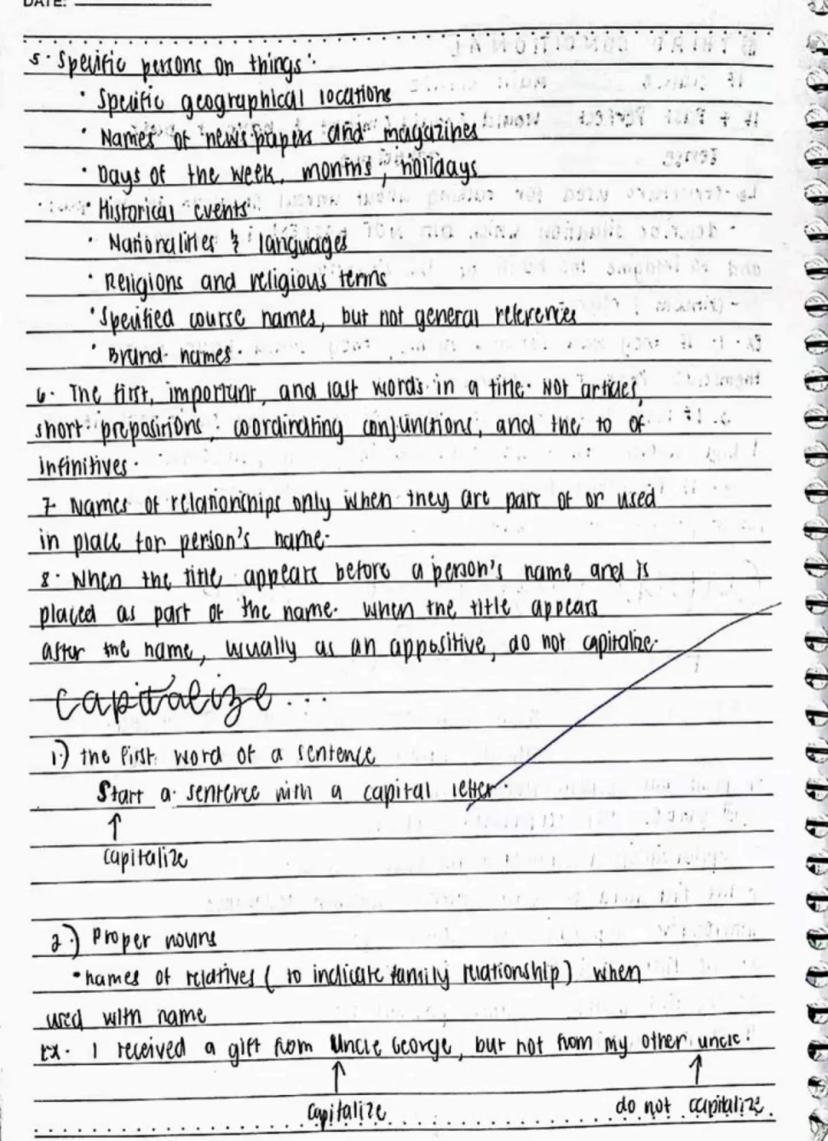 DATE:
5. Specific persons on things:
• Specific geographical locations
• Names of newspapers and magazines
• Days of the week, months, holidays
• Historical events
• Nationalities & languages
• Religions and religious terms
• Specified course names, but not general references
• Brand names.
6. The first, important, and last words in a title. Not articles,
short prepositions, coordinating conjunctions, and the to of
infinitives.
7. Names of relationships only when they are part of or used
in place for person's name.
8. When the title appears before a person's name and is
placed as part of the name. When the title appears
after the name, usually as an appositive, do not capitalize.
capitalize...
1.) the first word of a sentence
Start a sentence with a capital letter.
↑
capitalize
2.) Proper nouns
• names of relatives ( to indicate family relationship) when
used with name
Ex. I received a gift from Uncle George, but not from my other uncle.
↑ ↑
capitalize do not capitalize.